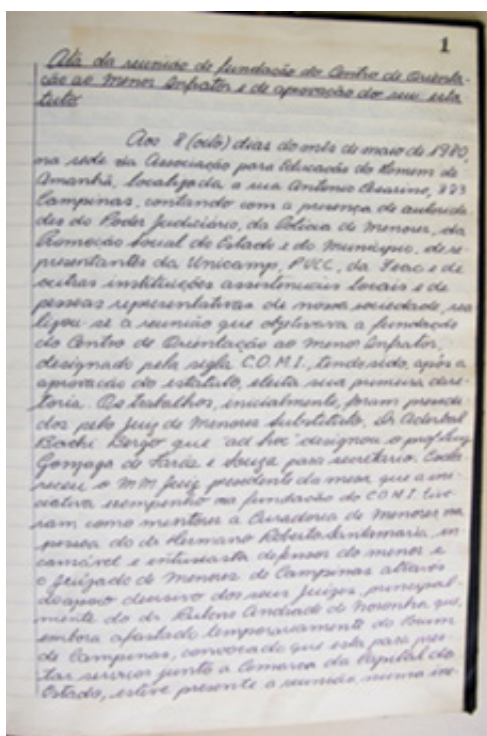 1
Ata da reunião de fundação do Centro de Orienta-
ção ao Menor Infrator e de aprovação do seu esta
tuto
Aos 8 (oito) dias do mês de maio de 1980,
na sede da Associação para Educação do Homem de
Amanhã, localizada a rua Antonio Cesarino, 873
Campinas, contando com a presença de autorida
des do Poder Judiciário, da Policia de Menores, da
Promoção Social do Estado e do Municipio, de re-
presentantes da Unicamp, PUCC, da Feac e de
outras instituições assistenciais locais e de
pessoas representativas de nossa sociedade, rea
lizou-se a reunião que objetivava a fundação
do Centro de Orientação ao Menor Infrator,
designado pela sigla C.O.M.I., tendo sido, após a
aprovação do estatuto, eleita sua primeira dire-
toria. Os trabalhos, inicialmente, foram presidi
dos pelo Juiz de Menores Substituto, Dr
que "ad hoc" designou o prof. Luiz
Gonzaga de e Souza para secretário.
receu o MM. Juiz presidente da mesa que a ini-
ciativa e empenho na fundação do C.O.M.I. tive-
ram como mentores a Curadoria de Menores na
pessoa do dr Hermano Roberto Santamaria, in
cansável e entusiasta defensor do menor e
o Juizado de Menores de Campinas através
do apoio decisivo dos seus Juizes, principal-
mente do dr. Rubens Andrade de Noronha que,
embora afastado temporariamente do Forum
de Campinas, convocado que está para pres
tar serviços junto a Comarca da Capital do
Estado, esteve presente a reunião, numa ine-